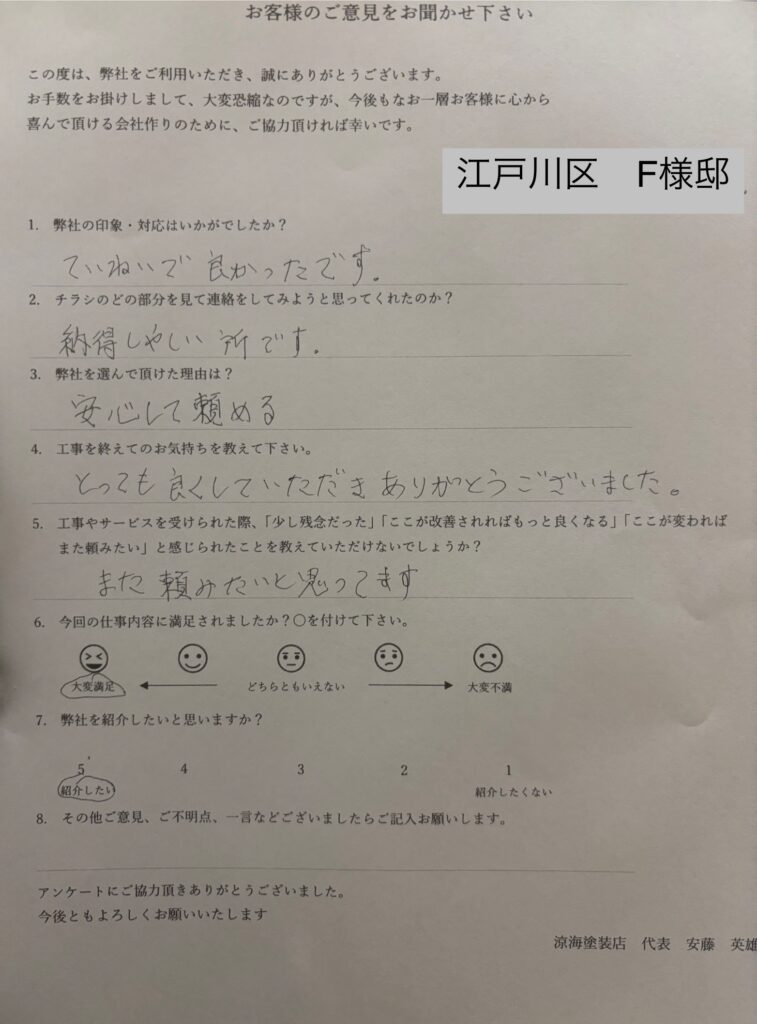 お客様のご意見をお聞かせ下さい
この度は、弊社をご利用いただき、誠にありがとうございます。
お手数をお掛けしまして、大変恐縮なのですが、今後もなお一層お客様に心から
喜んで頂ける会社作りのために、ご協力頂ければ幸いです。
江戸川区　F様邸
1. 弊社の印象・対応はいかがでしたか？
ていねいで良かったです。
2. チラシのどの部分を見て連絡をしてみようと思ってくれたのか？
納得しやしい所です。
3. 弊社を選んで頂けた理由は？
安心して頼める
4. 工事を終えてのお気持ちを教えて下さい。
とっても良くしていただきありがとうございました。
5. 工事やサービスを受けられた際、「少し残念だった」「ここが改善されればもっと良くなる」「ここが変われば
また頼みたい」と感じられたことを教えていただけないでしょうか？
また頼みたいと思ってます
6. 今回の仕事内容に満足されましたか？〇を付けて下さい。
大変満足 どちらともいえない 大変不満
7. 弊社を紹介したいと思いますか？
5 4 3 2 1
紹介したい 紹介したくない
8. その他ご意見、ご不明点、一言などございましたらご記入お願いします。
アンケートにご協力頂きありがとうございました。
今後ともよろしくお願いいたします
涼海塗装店　代表　安藤　英雄